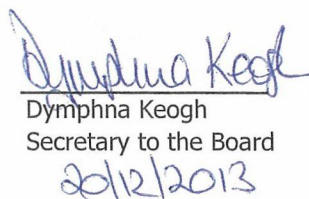 Dymphna Keogh
Dymphna Keogh
Secretary to the Board
20/12/2013